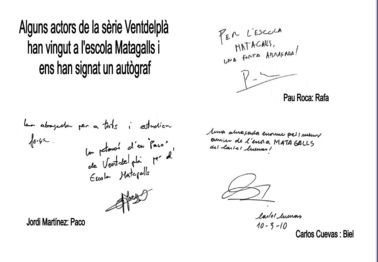 Alguns actors de la sèrie Ventdelplà
han vingut a l'escola Matagalls i
ens han signat un autògraf
PER L'ESCOLA
MATAGALLS,
UNA FORTA ABRAÇADA!
Pau Roca: Rafa
Una abraçada per a tots i
força.
Un petonet d'en "Paco"
de Ventdelplà per a l'
Escola Matagalls
Jordi Martínez: Paco
Una abraçada enorme pels
de l'escola MATAGALLS
del Carles Cuevas!
Carles Cuevas
10-3-10
Carlos Cuevas : Biel